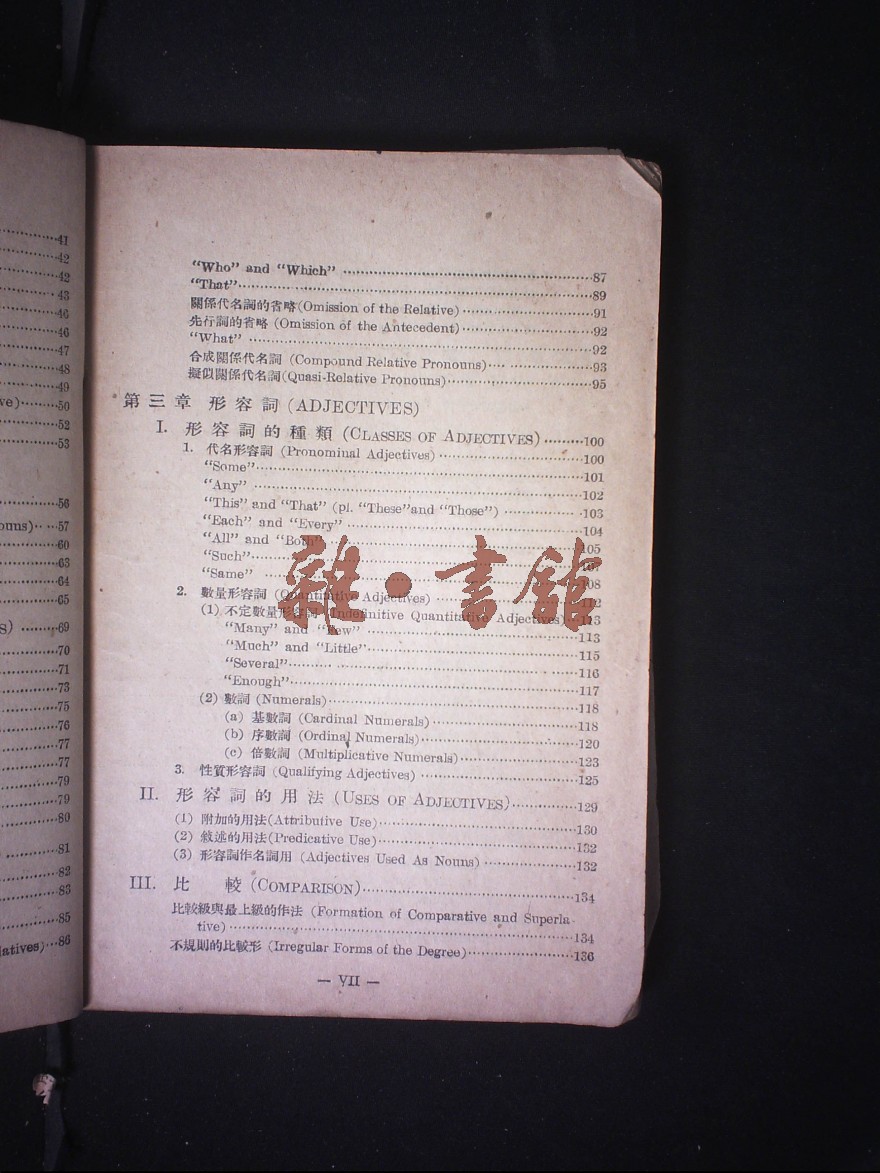 41
42
42
43
46
46
47
48
49
ve)……50
52
53
56
ouns)……57
60
63
64
65
S)……69
70
71
73
75
76
77
77
79
79
80
81
82
83
85
latives)…86
“Who” and “Which” ……87
“That”……89
關係代名詞的省略(Omission of the Relative)……91
先行詞的省略 (Omission of the Antecedent)……92
“What” ……92
合成關係代名詞 (Compound Relative Pronouns)……93
擬似關係代名詞(Quasi-Relative Pronouns)……95
第三章 形容詞 (ADJECTIVES)
I. 形容詞的種類 (CLASSES OF ADJECTIVES)……100
1. 代名形容詞 (Pronominal Adjectives)……100
“Some”……101
“Any” ……102
“This” and “That” (pl. “These”and “Those”) ……103
“Each” and “Every” ……104
“All” and “Both” ……105
“Such”……
“Same” ……108
2. 數量形容詞 (Quantitative Adjectives) ……112
(1) 不定數量形容詞 (Indefinitive Quantitative Adjectives)……113
“Many” and “Few” ……113
“Much” and “Little”……115
“Several”……116
“Enough”……117
(2) 數詞 (Numerals)……118
(a) 基數詞 (Cardinal Numerals)……118
(b) 序數詞 (Ordinal Numerals)……120
(c) 倍數詞 (Multiplicative Numerals)……123
3. 性質形容詞 (Qualifying Adjectives) ……125
II. 形容詞的用法 (USES OF ADJECTIVES)……129
(1) 附加的用法(Attributive Use)……130
(2) 敘述的用法(Predicative Use)……132
(3) 形容詞作名詞用 (Adjectives Used As Nouns) ……132
III. 比 較 (COMPARISON)……134
比較級與最上級的作法 (Formation of Comparative and Superla
tive) ……134
不規則的比較形 (Irregular Forms of the Degree)……136
— VII —
雜·書館